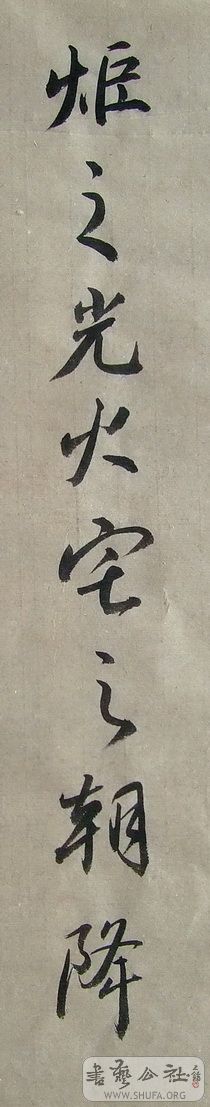 炬之光火宅之朝降
書藝公社
WWW.SHUFA.ORG